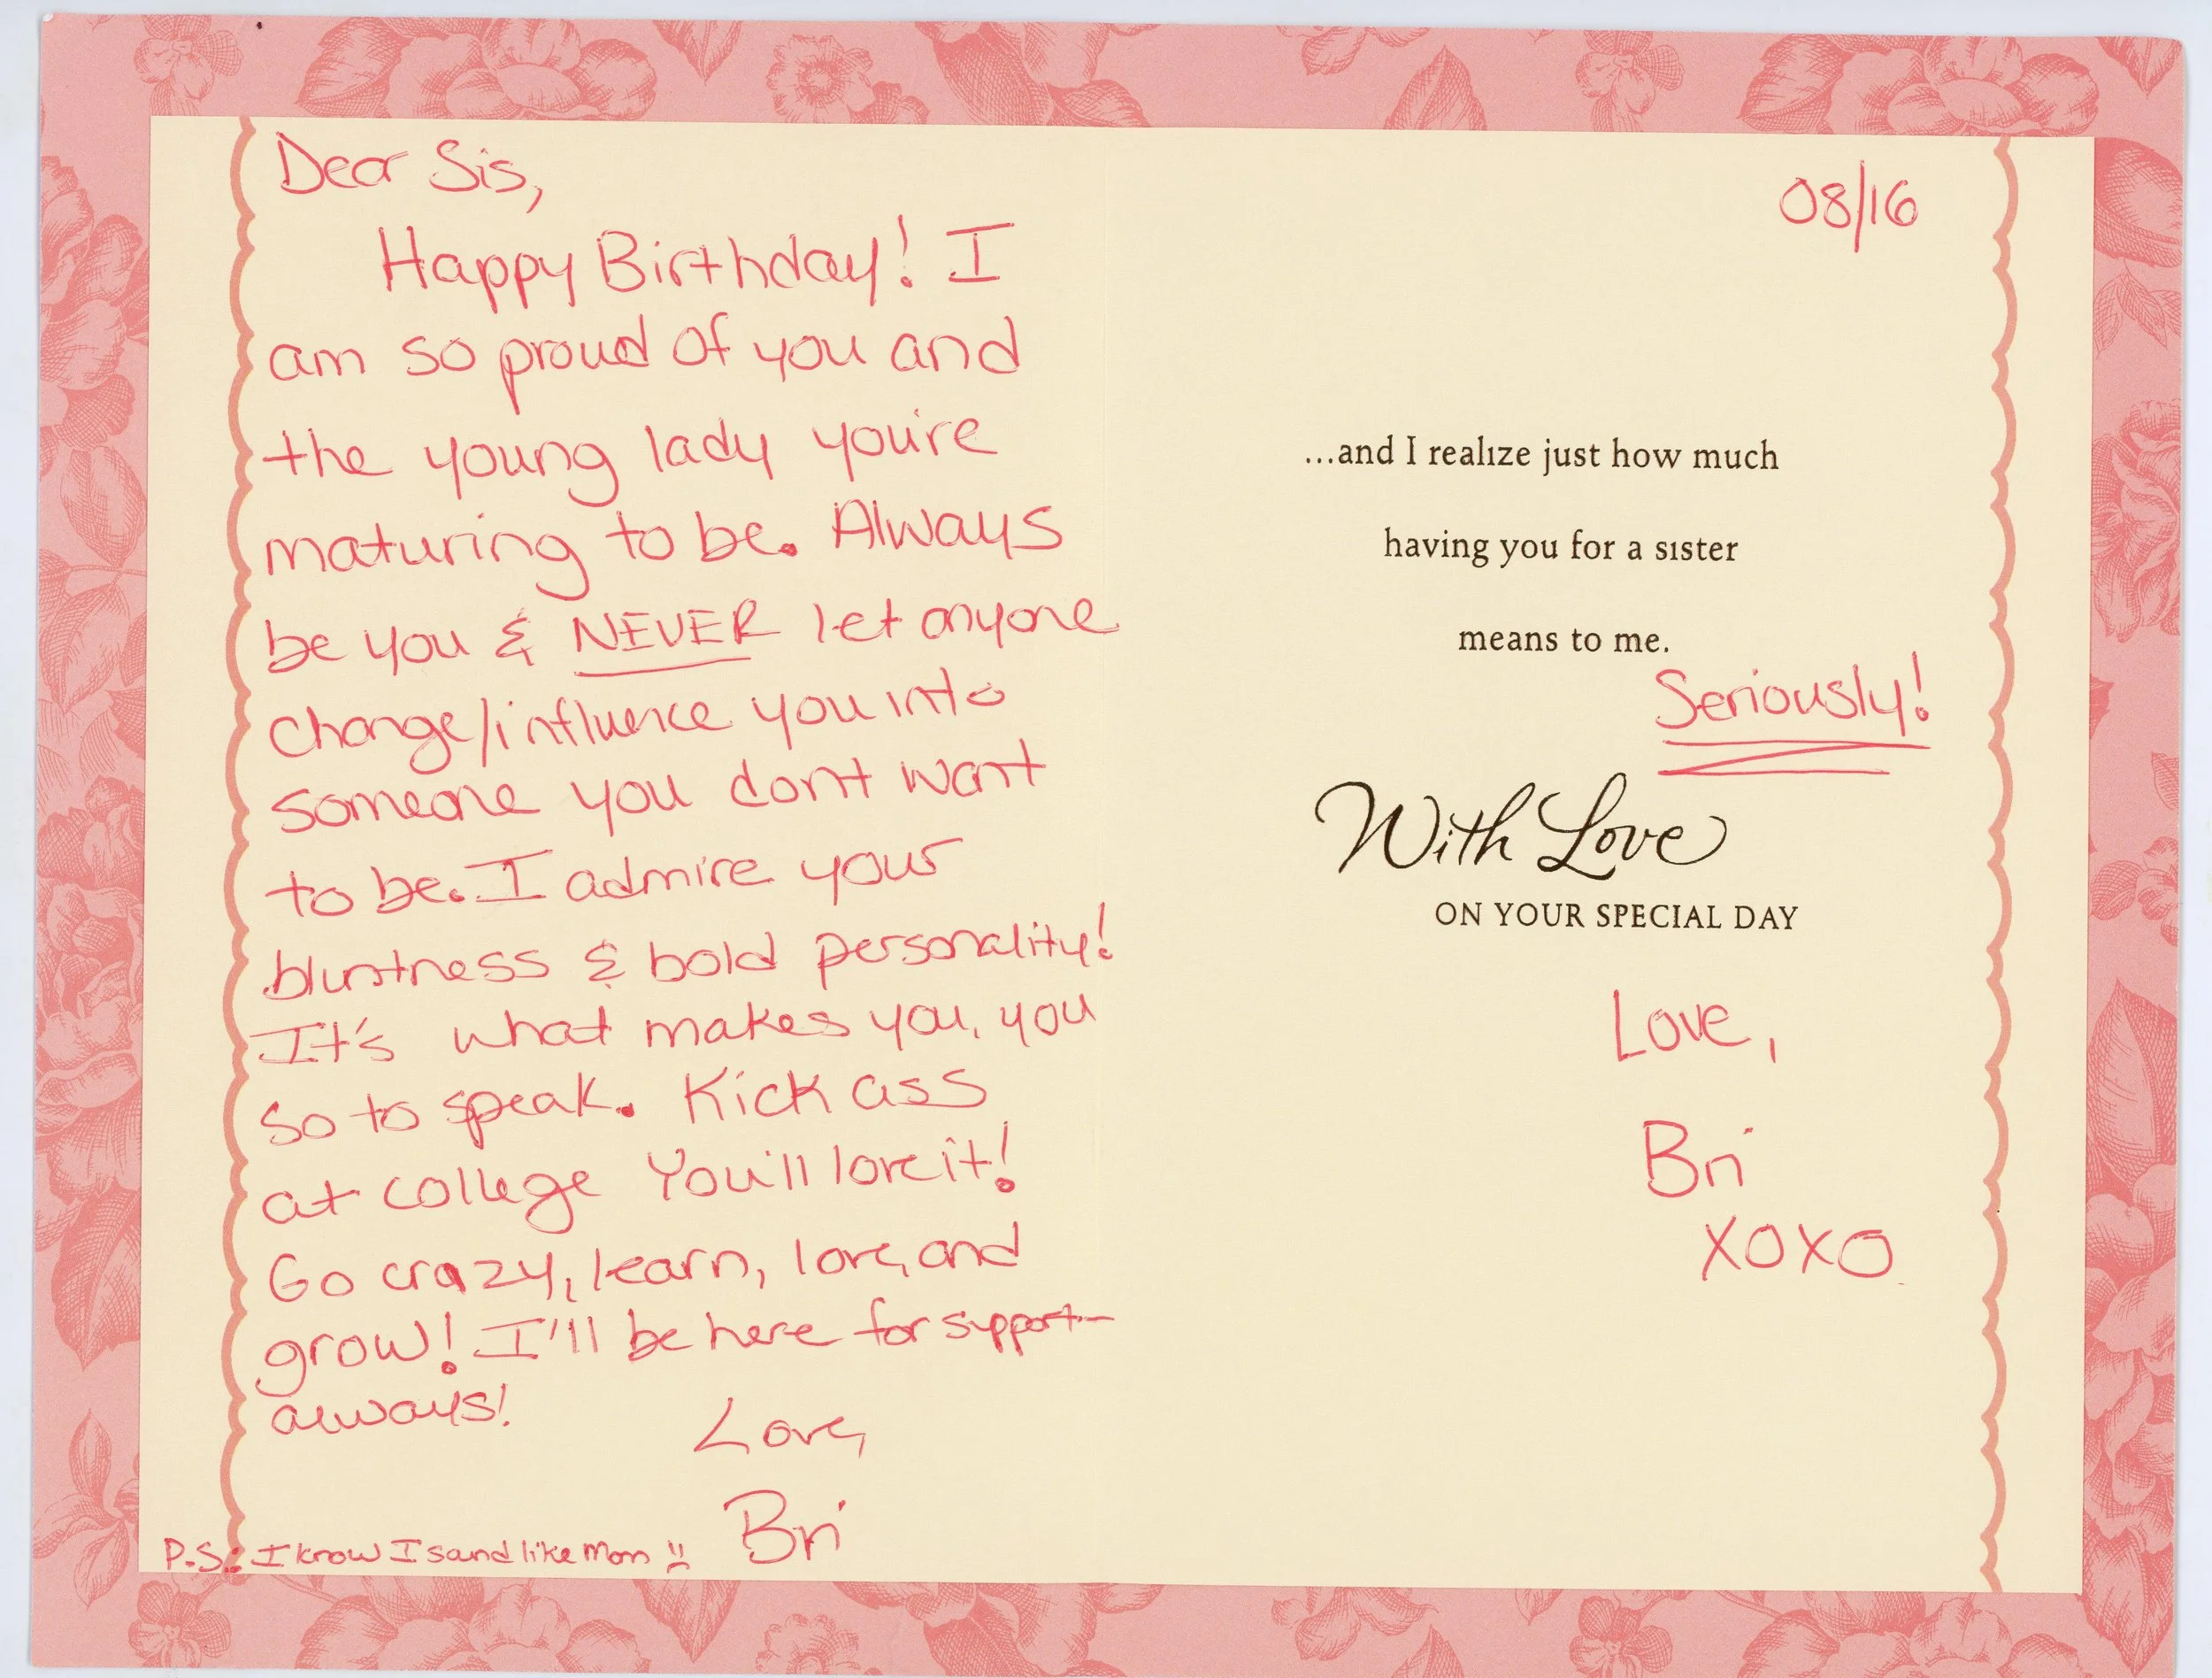 Dear Sis,
Happy Birthday! I
am so proud of you and
the young lady you're
maturing to be. Always
be you & NEVER let anyone
change/influence you into
someone you dont want
to be. I admire your
bluntness & bold personality!
It's what makes you, you
so to speak. Kick ass
at college You'll love it!
Go crazy, learn, love, and
grow! I'll be here for support-
always!
Love,
Bri
P.S.: I know I sound like Mom
08/16
...and I realize just how much
having you for a sister
means to me.
Seriously!
With Love
ON YOUR SPECIAL DAY
Love,
Bri
XOXO